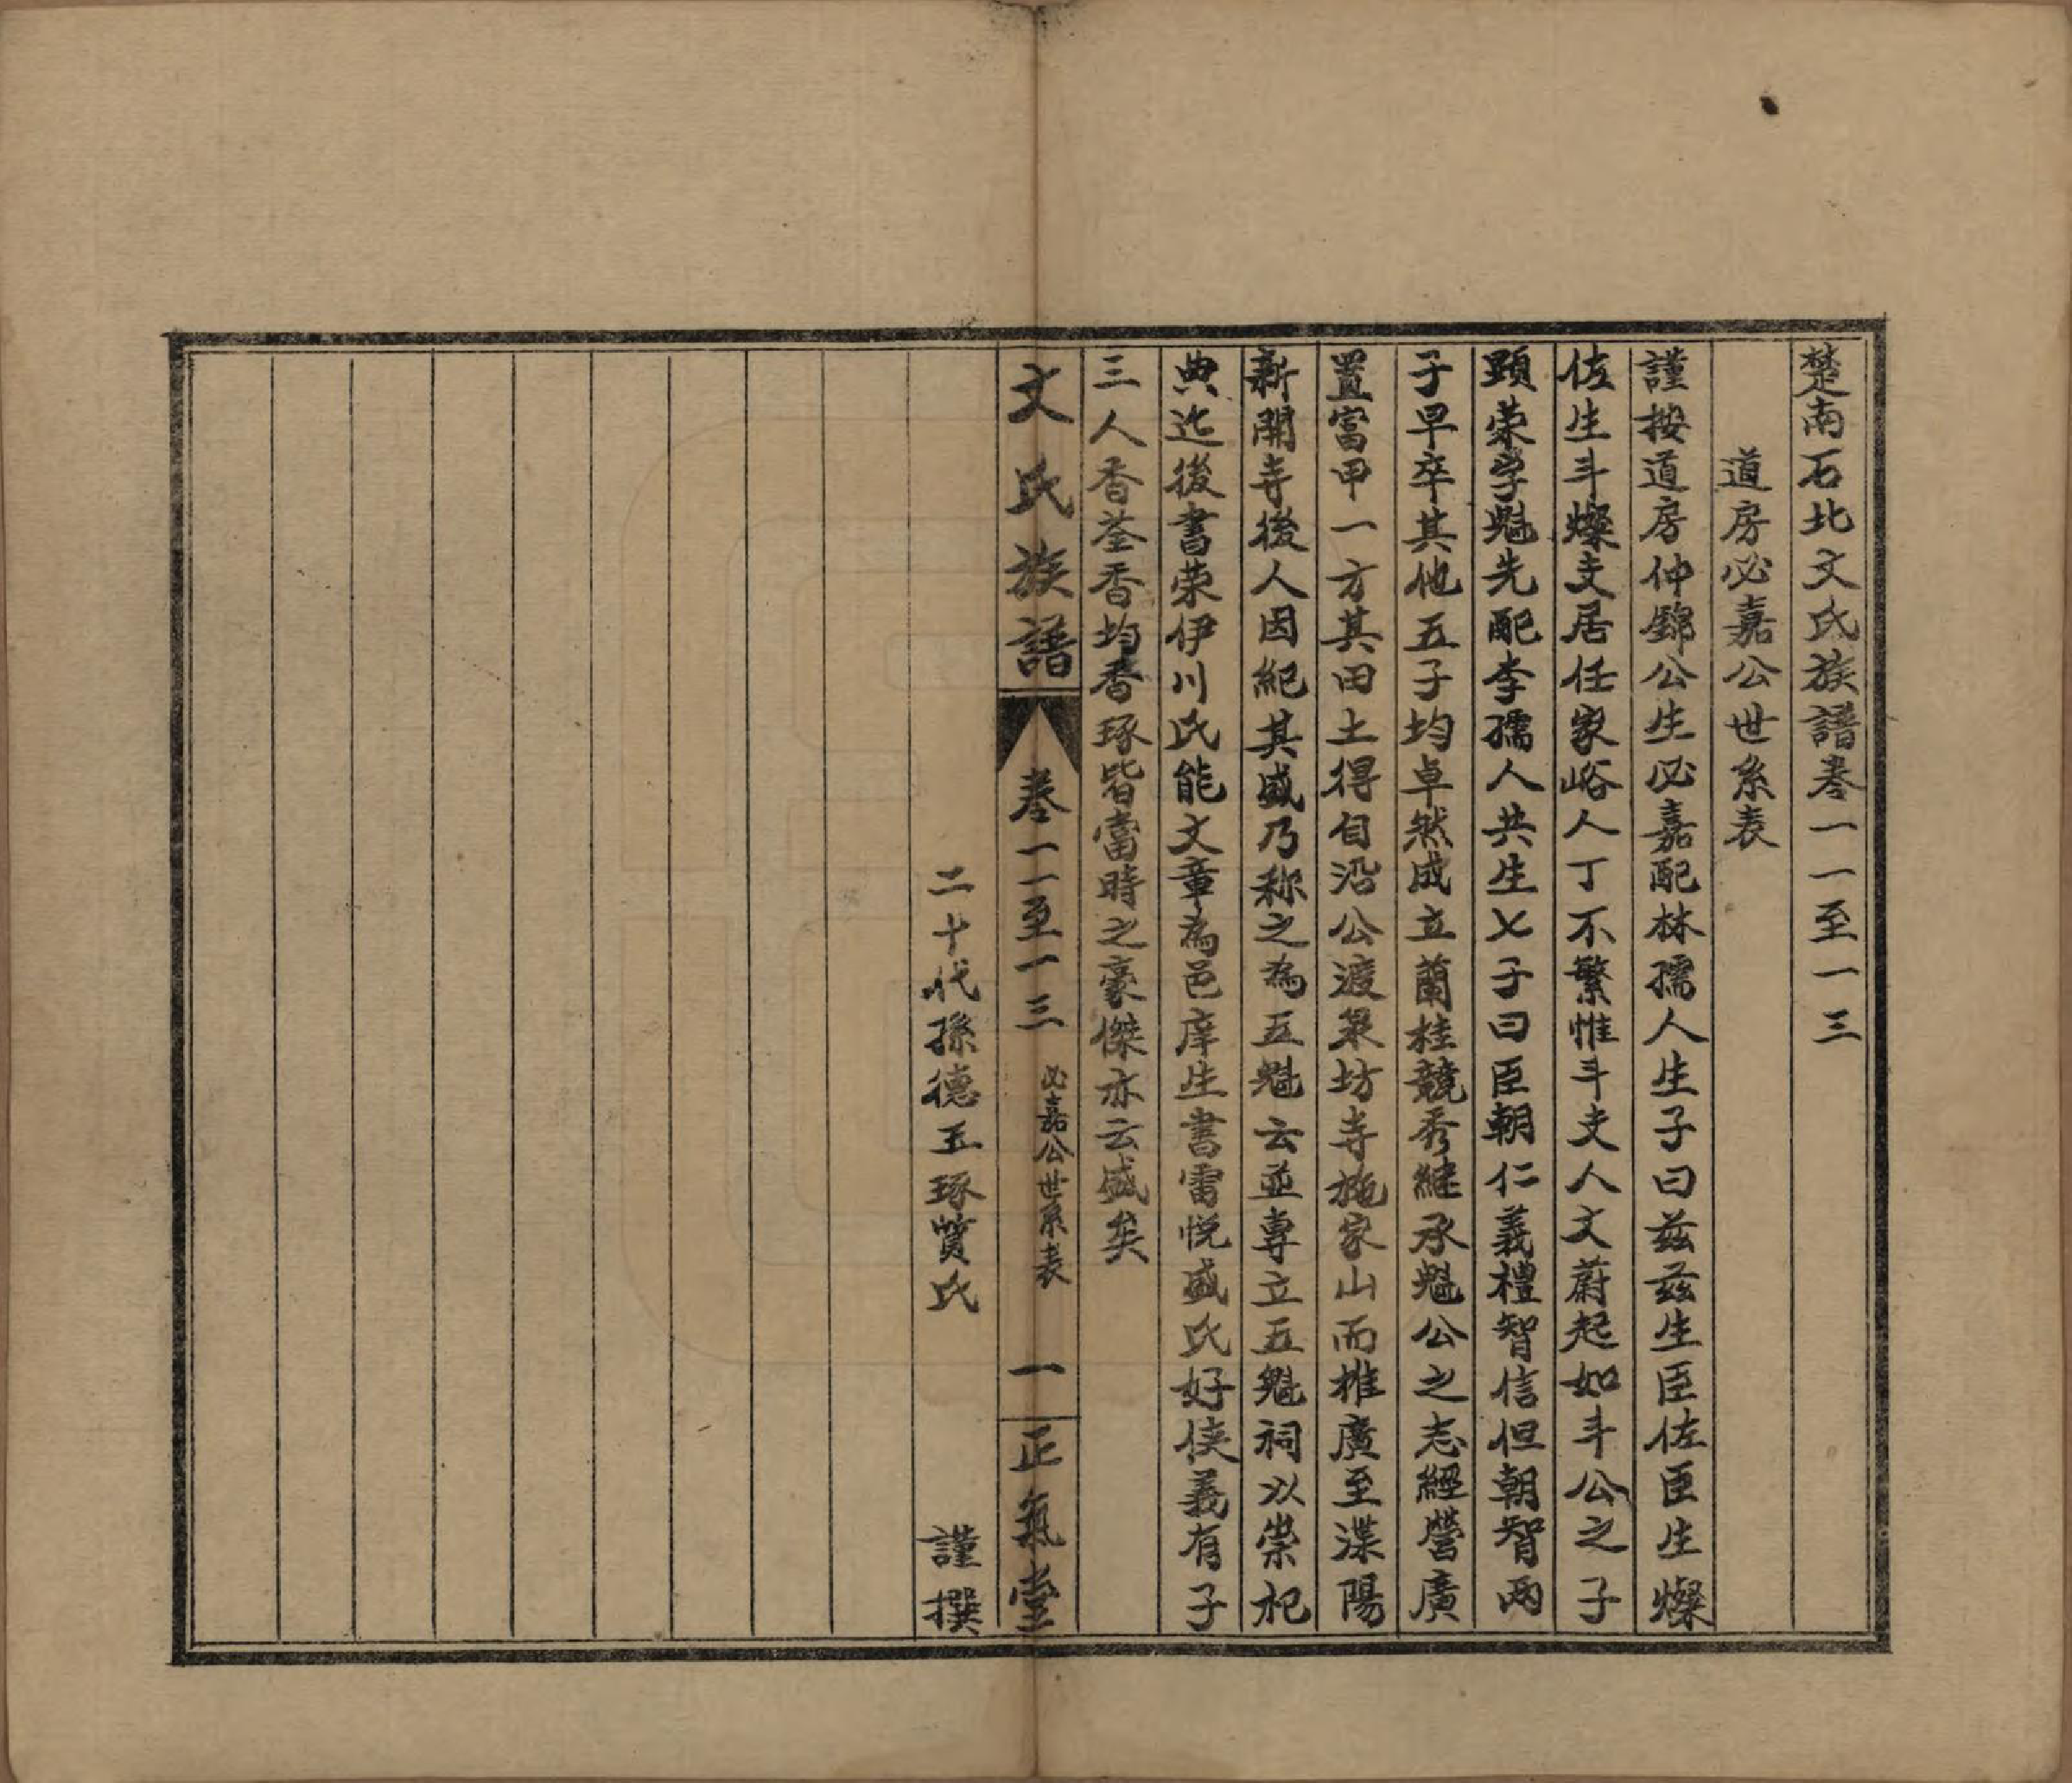 楚南石北文氏族譜卷一一至一三
道房必嘉公世系表
謹按道房仲錦公生必嘉配林孺人生子曰兹兹生臣佐臣生燦
佐生斗燦支居任家峪人丁不繁惟斗支人文蔚起如斗公之子
顕荣字魁先配李孺人共生七子曰臣朝仁義禮智信但朝智两
子早卒其他五子均卓然成立蘭桂競秀継承魁公之志經營廣
置富甲一方其田土得自沿公渡泉坊寺施家山而推廣至渫陽
新開寺後人因紀其盛乃称之為五魁云並専立五魁祠以崇祀
典迄後書荣伊川氏能文章為邑庠生書雷悦盛氏好俠義有子
三人香荃香均香琢皆當時之豪傑亦云盛矣
文氏族譜
卷一一至一三
必嘉公世系表
一
正氣堂
二十代孫德玉琢賞氏 謹撰